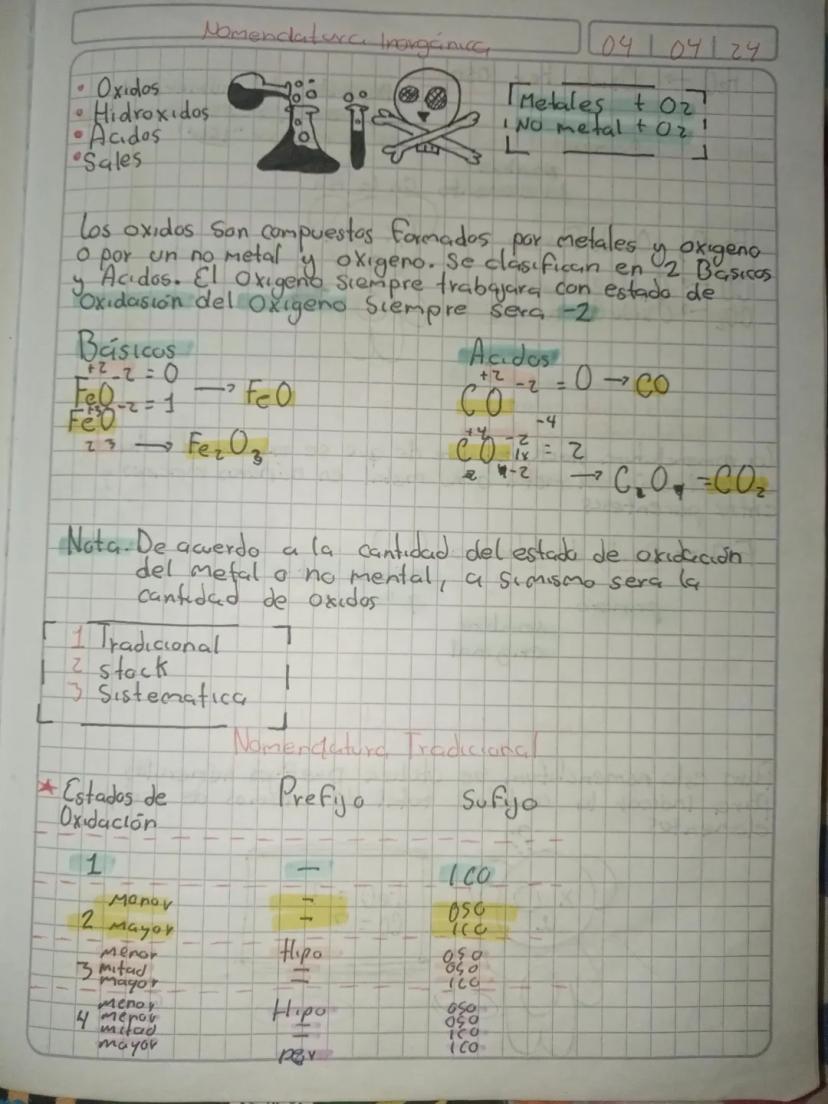 Nomenclatura Inorgánica
04 | 04 | 24
• Oxidos
• Hidroxidos
• Acidos
• Sales
Metales + O2
No metal + O2
Los oxidos son compuestos formados por metales y oxigeno
o por un no metal y oxigeno. Se clasifican en 2 Básicos
y Acidos. El Oxigeno siempre trabajara con estado de
oxidasión del oxigeno siempre sera -2
Básicos
+2 -2 = 0
FeO → FeO
+3 -2 = 1
FeO
2 3 → Fe2O3
Acidos
+2 -2 = 0 → CO
CO
-4
+4 -2
CO 1x = 2
-2
→ C2O4 = CO2
Nota. De acuerdo a la cantidad del estado de oxidación
del metal o no mental, a si mismo sera la
cantidad de oxidos
1 Tradicional
2 Stock
3 Sistematica
Nomenclatura Tradicional
* Estados de Oxidación
Prefijo
Sufijo
1 — ICO
menor — OSO
2 mayor — ICO
menor Hipo oso
3 mitad — oso
mayor — ico
menor Hipo oso
4 menor — oso
mitad — ico
mayor per ico